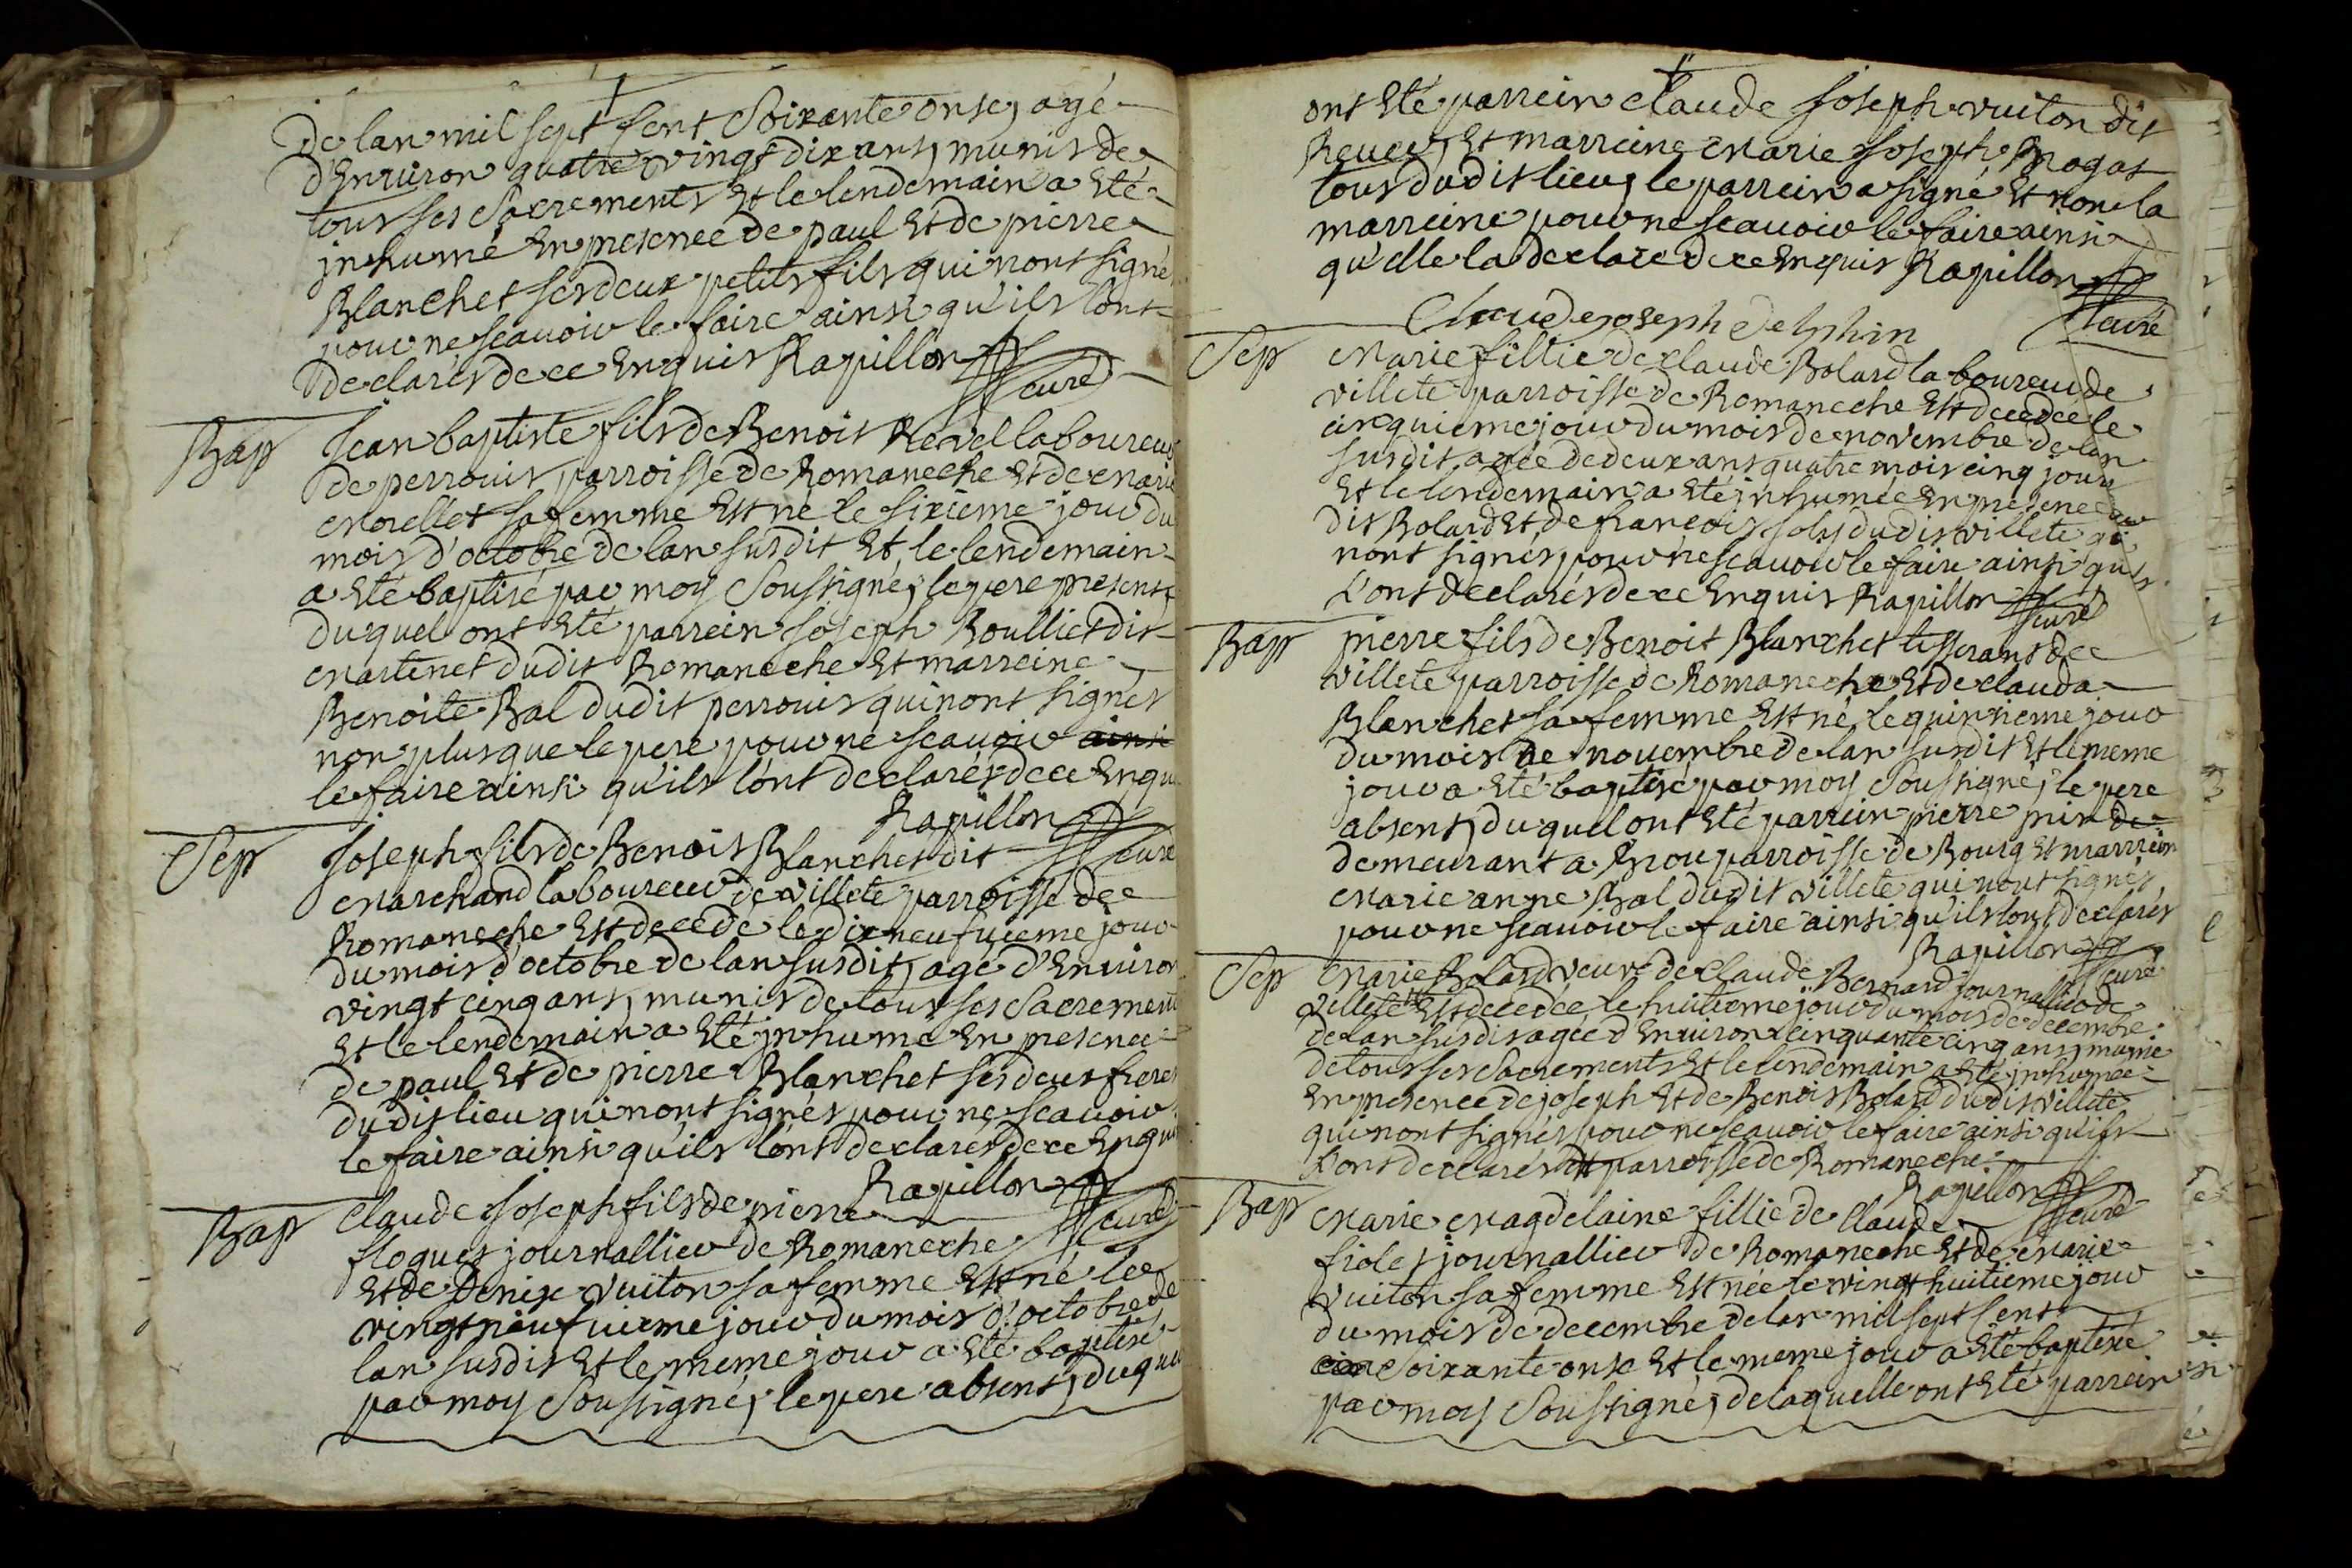 de lan mil sept sent Soixante onse, agé
d'Enuiron quatre vingt dix ans, munis de
tous ses Sacrements Et le lendemain a Eté
jnhumé En presence de paul Et de pierre
Blanchet ses deux petits fils qui nont signé
pour ne scauoir le faire ainsi qu'ils lont
declarés de ce Enquis Rapillon
curé
Bap
Jean baptiste fils de Benoit Revel laboureur
de perrouis, parroisse de Romaneche Et de marie
morellet sa femme Est né le sixieme jour du
mois d'octobre de lan susdit Et le lendemain
a Eté baptisé par moy Soussigné, le pere present,
duquel ont Eté parrein joseph Roulliet dit
martenet dudit Romaneche Et marreine
Benoite Bal dudit perrouis qui nont signés
non plus que le pere pour ne scauoir ainsi
le faire ainsi qu'ils lont declarés de ce Enqu
Rapillon
curé
Sep
Joseph fils de Benoit Blanchet dit
marchand laboureur de villete parroisse de
Romaneche Est decedé le dix neufuieme jour
du mois d'octobre de lan susdit, agé d'Enuiron
vingt cinq ans, munis de tous ses Sacrement
Et le lendemain a Eté jnhumé En presence
de paul Et de pierre Blanchet ses deux freres
dudit lieu qui nont signés pour ne scauoir
le faire ainsi qu'ils lont declarés de ce Enqu
Rapillon
curé
Bap
Claude Joseph fils de pierre
floquet journallier de Romaneche
Et de Denise vuiton sa femme Est né le
vingt neufuieme jour du mois d'octobre de
lan susdit Et le meme jour a Eté baptisé
par moy Soussigné, le pere absent, duquel
ont Eté parrein Claude Joseph vuiton dit
Et marreine marie Joseph
tous dudit lieu, le parrein a signé Et non la
marreine pour ne scauoir le faire ainsi
qu'elle la declaré de ce Enquis Rapillon
curé
Claude joseph delphin
Sep
marie fillie de claude Bolard laboureur de
villete parroisse de Romaneche Est decedée le
cinquieme jour du mois de novembre de lan
susdit agée de deux ans quatre mois cinq jours
Et le lendemain a Eté jnhumée En presence du
dit Bolard Et de francois joly dudit villete qui
nont signés, pour ne scauoir le faire ainsi quils
l'ont declarés de ce Enquis Rapillon
curé
Bap
pierre fils de Benoit Blanchet tisserant de
villete parroisse de Romaneche Et de clauda
Blanchet sa femme Est né, le quinsieme jour
du mois de nouembre de lan susdit Et le meme
jour a Eté baptisé par moy Soussigné, le pere
absent, duquel ont Eté parrein pierre
demeurant a Brou parroisse de Bourg Et marrein
marie anne Bal dudit villete qui nont signés
pour ne scauoir le faire ainsi qu'ils lont declarés
Rapillon
curé
Sep
marie Bolard veuve de Claude Bernard journallier de
villete Est decedée le huitieme jour du mois de decembre
de lan susdit agée d'Enuiron cinquante cinq ans, munie
de tous ses Sacrements Et le lendemain a Eté jnhumée
En presence de joseph Et de Benoit Bolard dudit villete
qui nont signés pour ne scauoir le faire ainsi qu'ils
l'ont declarés parroisse de Romaneche
Rapillon
curé
Bap
marie magdelaine fillie de Claude
fiolet journallier de Romaneche Et de marie
vuiton sa femme Est née le vingt huitieme jour
du mois de decembre de lan mil sept sent
Soixante onse Et le meme jour a Eté baptisé
par moy Soussigné, de laquelle ont Eté parrein